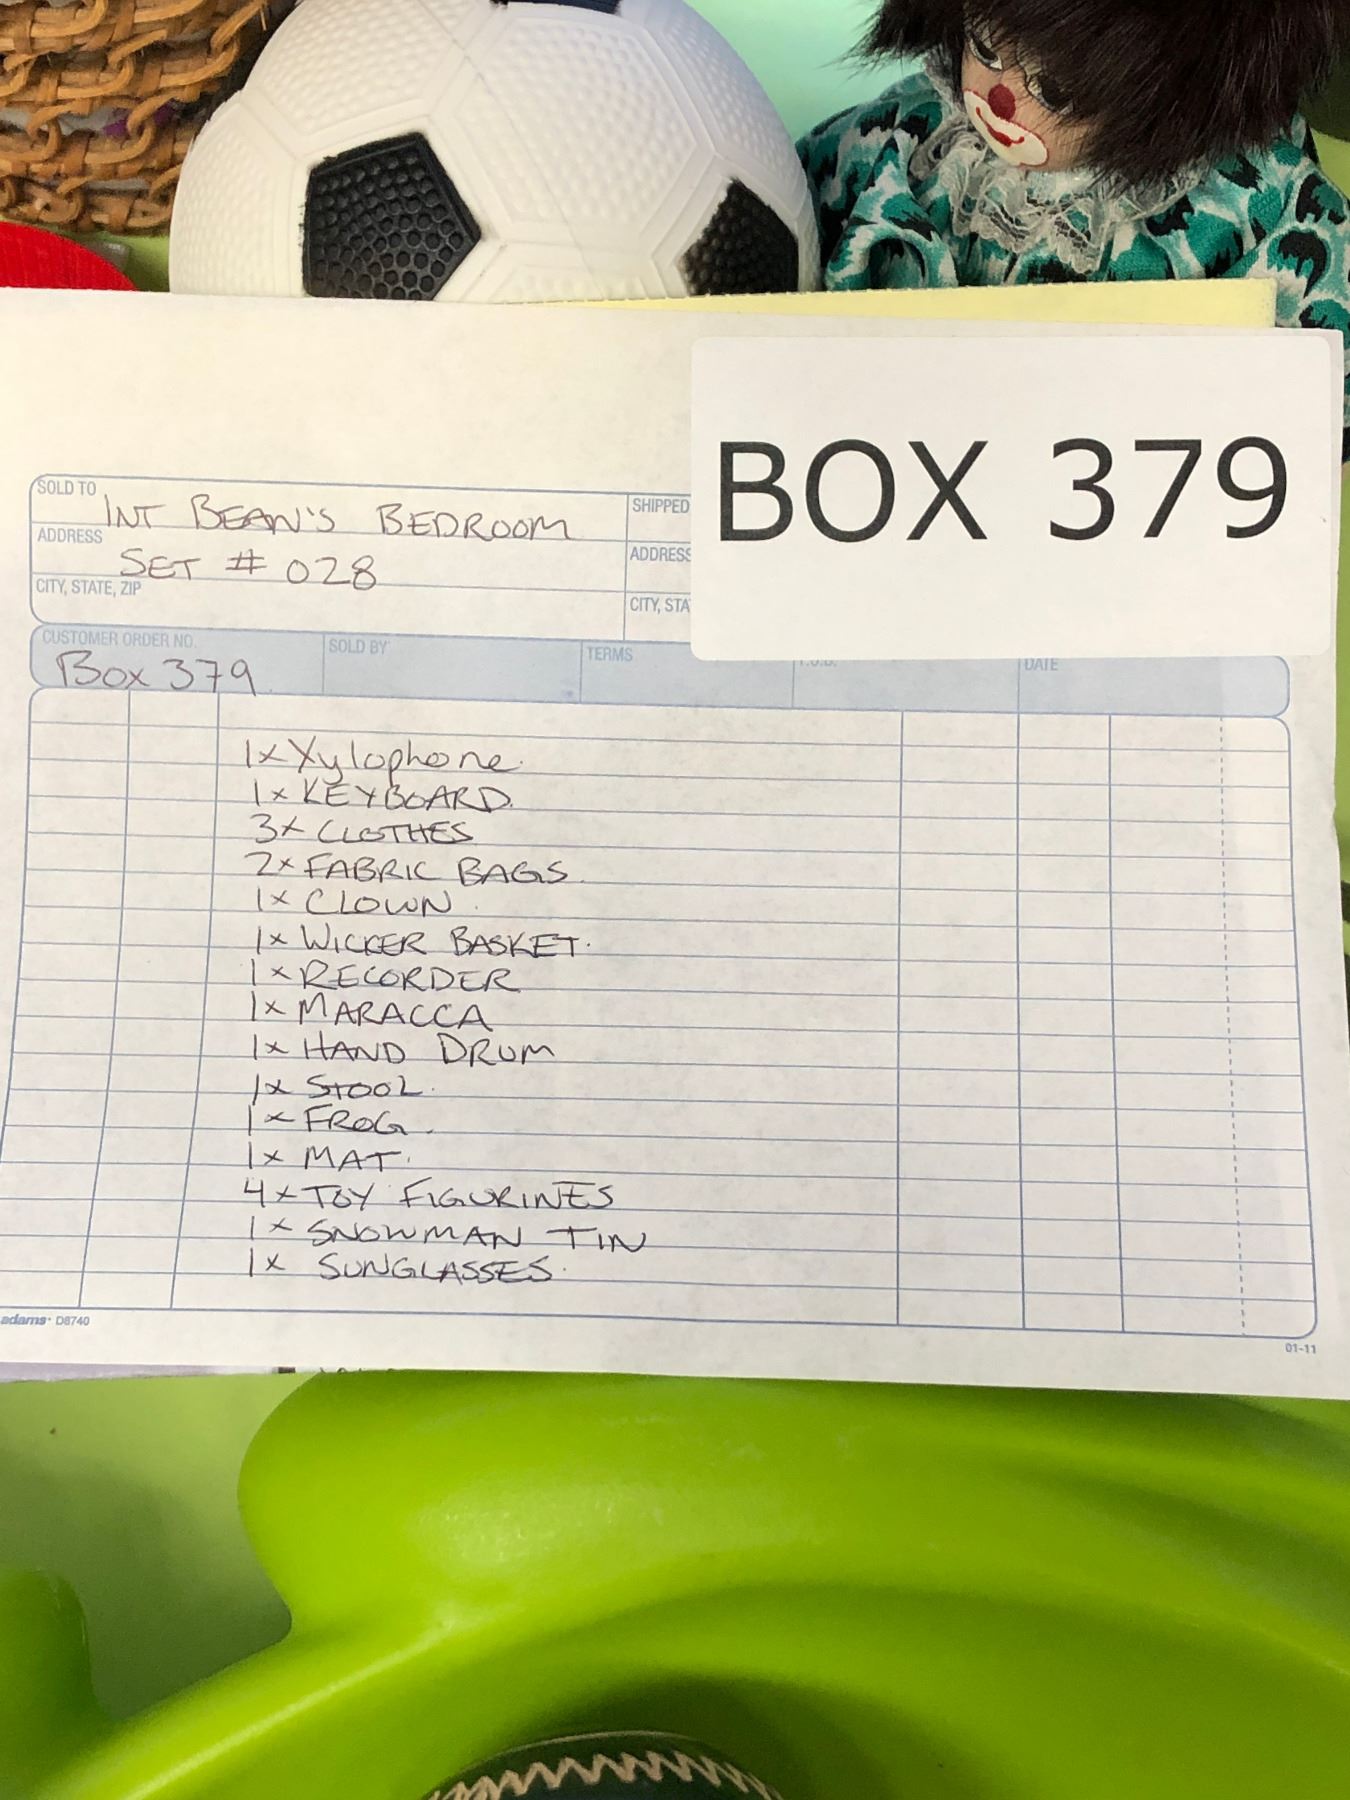 BOX 379
SOLD TO
INT BEAN'S BEDROOM
SHIPPED
ADDRESS
SET # 028
ADDRESS
CITY, STATE, ZIP
CITY, STA
CUSTOMER ORDER NO.
Box 379
SOLD BY
TERMS
F.O.B.
DATE
1x Xylophone
1x KEYBOARD.
3x CLOTHES
2x FABRIC BAGS.
1x CLOWN.
1x WICKER BASKET.
1x RECORDER
1x MARACCA
1x HAND DRUM
1x STOOL.
1x FROG.
1x MAT.
4x TOY FIGURINES
1x SNOWMAN TIN
1x SUNGLASSES.
adams D8740
01-11